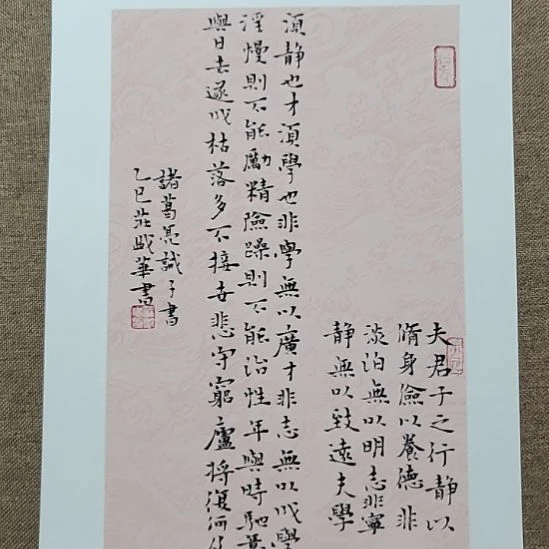 夫君子之行静以
脩身儉以養德非
淡泊無以明志非寧
静無以致遠夫學
須静也才須學也非學無以廣才非志無以成學
淫慢則不能勵精險躁則不能治性年與時馳意
與日去遂成枯落多不接世悲守窮廬將復何
諸葛亮誡子書
乙巳莊成華書